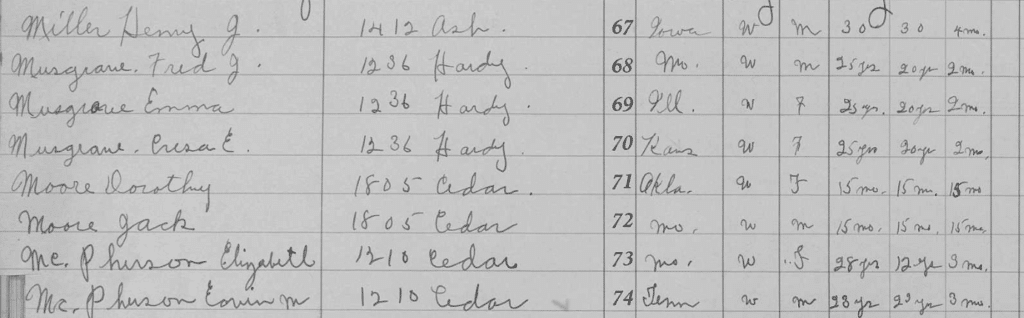 Miller Henry J. 1412 Ash. 67 Iowa W M 30 30 4 mo.
Musgrave. Fred J. 1236 Hardy. 68 Mo. W M 25 yrs 20 yr 2 mo.
Musgrave Emma 1236 Hardy. 69 Ill. W F 25 yrs. 20 yrs 2 mo.
Musgrave. E. 1236 Hardy. 70 Kans W F 25 yrs 20 yr 2 mo.
Moore Dorothy 1805 Cedar. 71 Okla. W F 15 mo. 15 mo. 15 mo
Moore Jack 1805 Cedar 72 Mo. W M 15 mo. 15 mo. 15 mo.
Mc. Pherson Elizabeth 1210 Cedar 73 Mo. W F 28 yrs 12 yr 3 mo.
Mc. Pherson M 1210 Cedar 74 Tenn W M 23 yr 23 yr 3 mo.